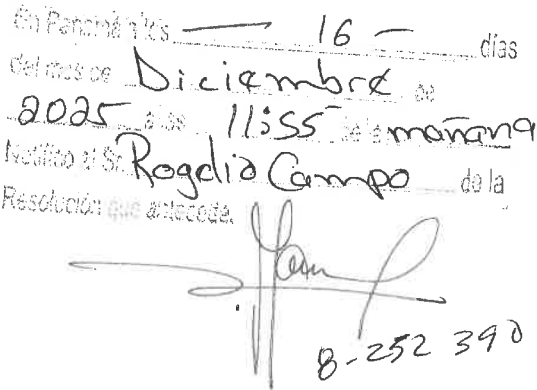 En Panamá a los — 16 — días
del mes de Diciembre de
2025 a las 11:55 de la mañana
Notifico al Sr. Rogelio Campo de la
Resolución que antecede.
8-252 390